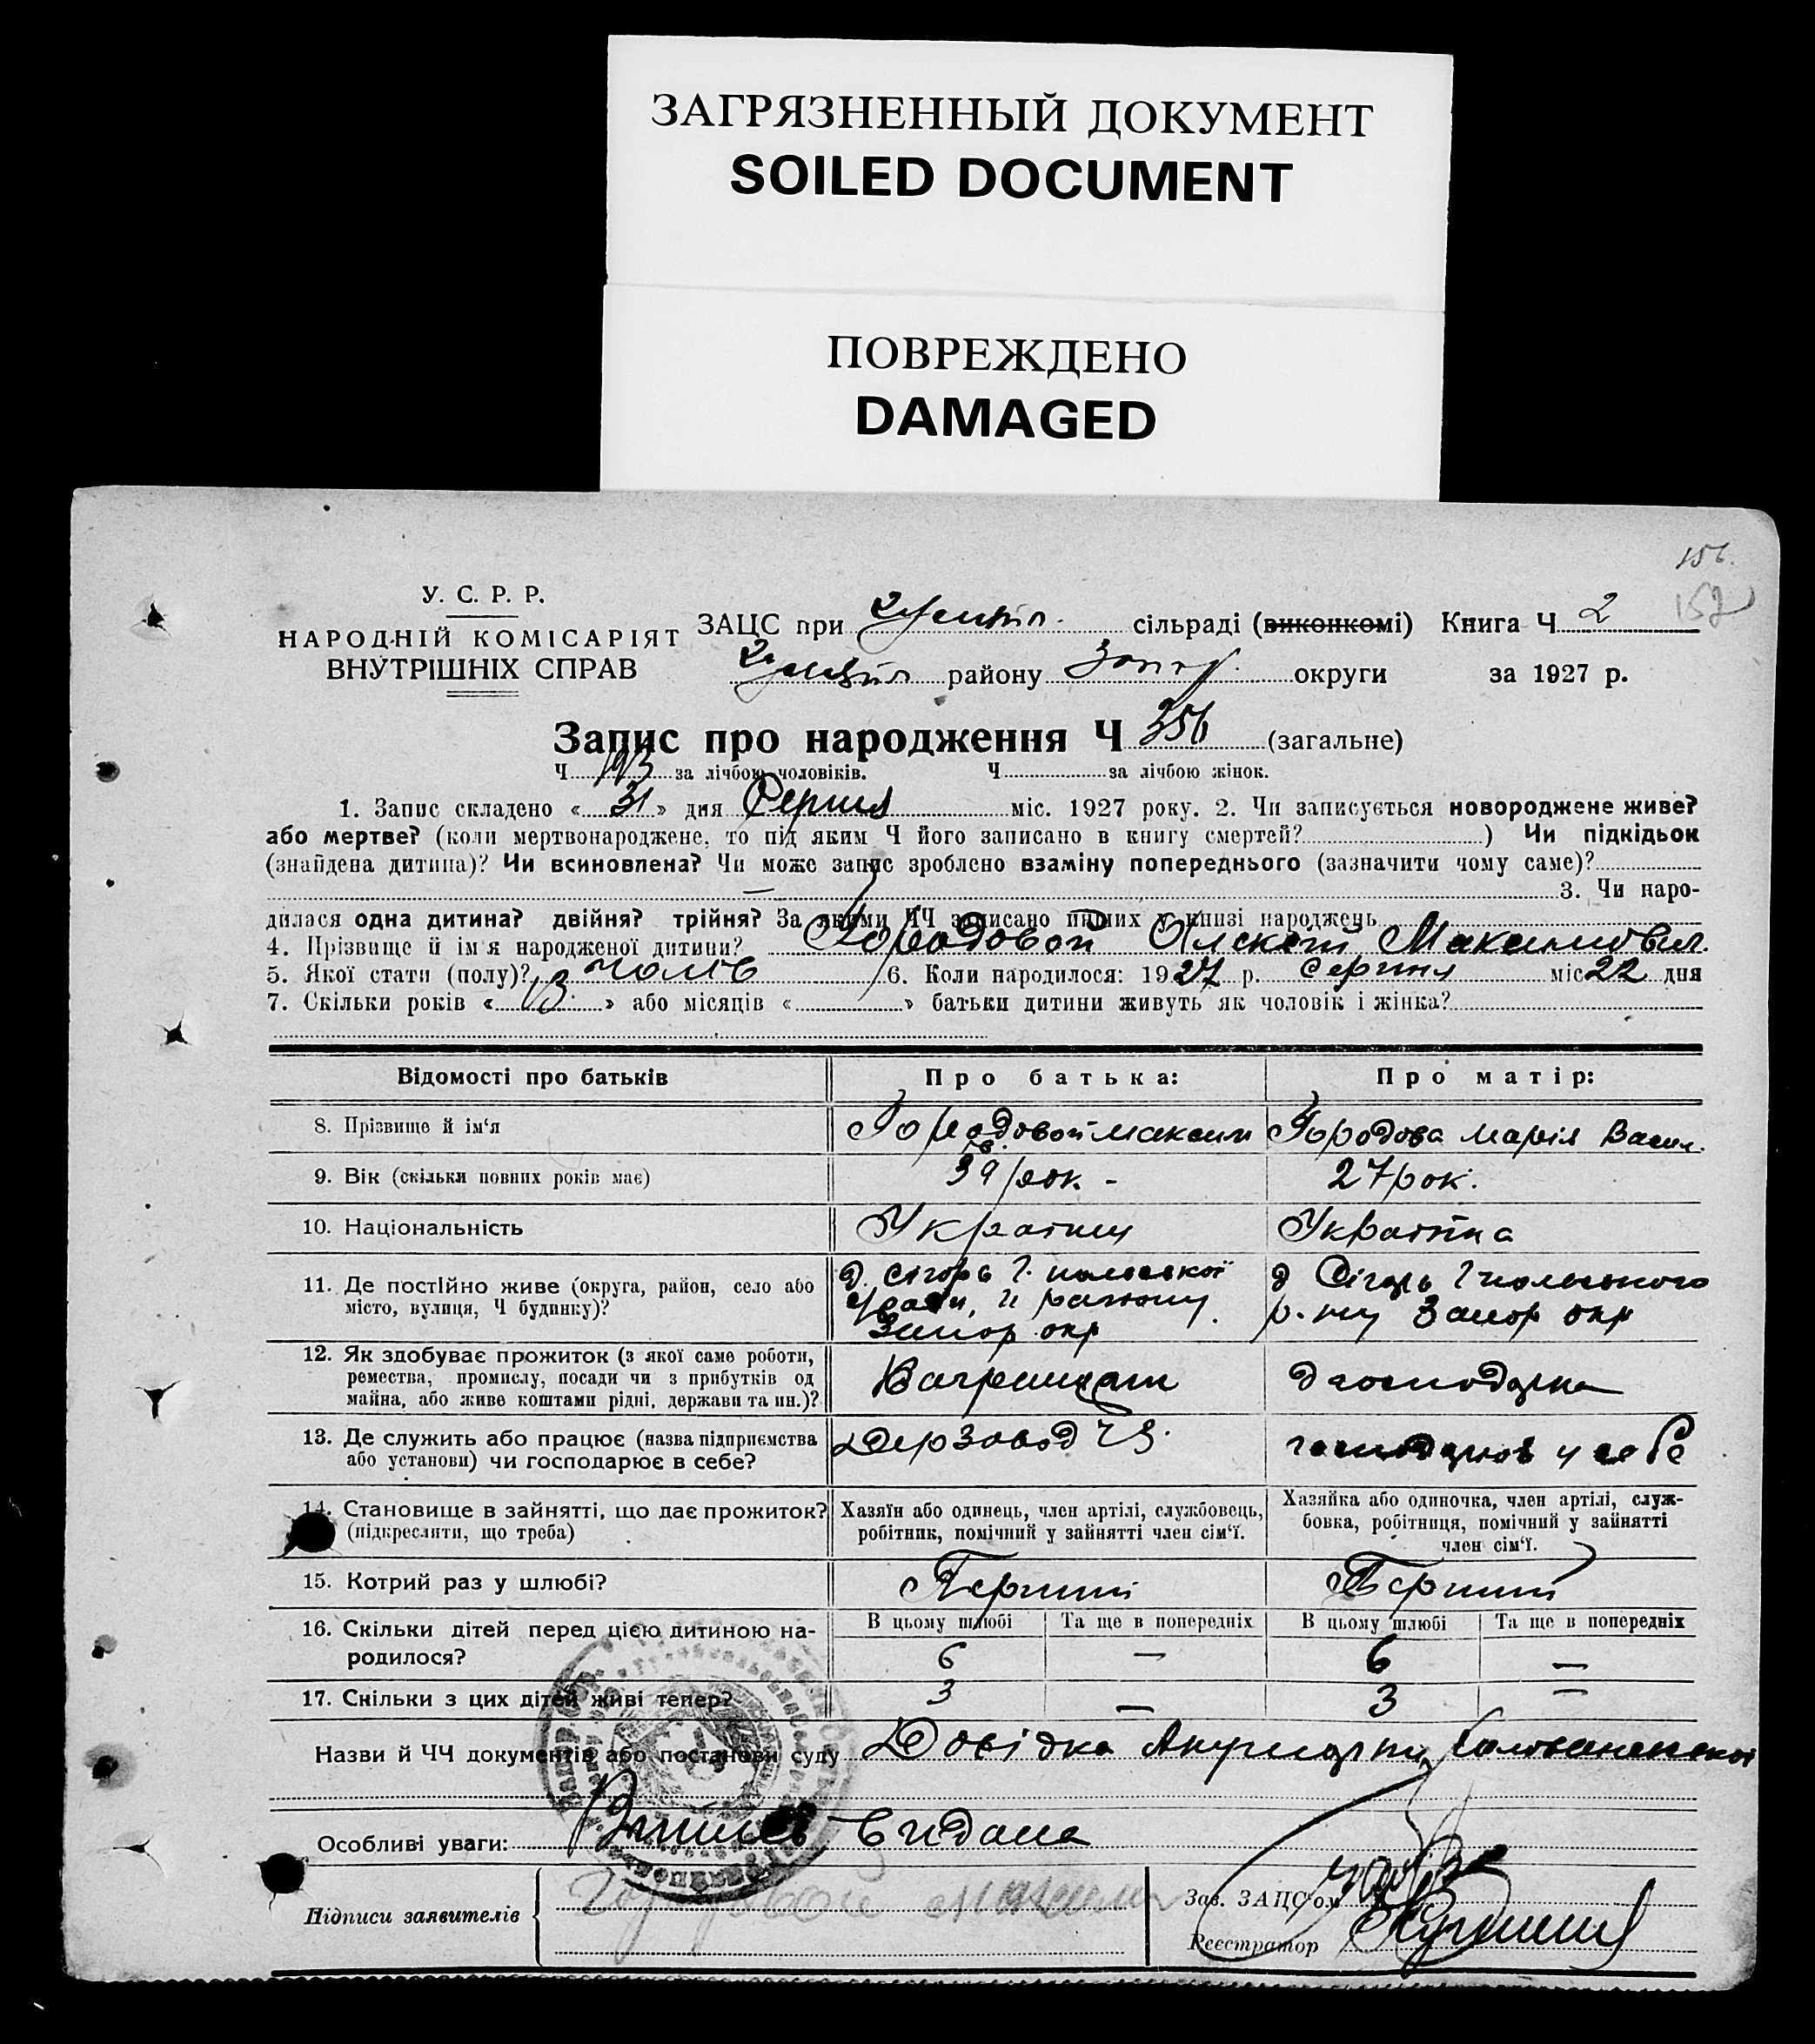 ЗАГРЯЗНЕННЫЙ ДОКУМЕНТ
SOILED DOCUMENT
ПОВРЕЖДЕНО
DAMAGED
156.
157
У. С. Р. Р.
НАРОДНІЙ КОМІСАРІЯТ
ВНУТРІШНІХ СПРАВ
ЗАЦС при сільраді (виконкомі) Книга Ч 2
району Запор. округи за 1927 р.
Запис про народження Ч 356 (загальне)
Ч 193 за лічбою чоловіків. Ч за лічбою жінок.
1. Запис складено « 31 » дня Серпня міс. 1927 року. 2. Чи записується новороджене живе?
або мертве? (коли мертвонароджене, то під яким Ч його записано в книгу смертей? ) Чи підкідьок
(знайдена дитина)? Чи всиновлена? Чи може запис зроблено взаміну попереднього (зазначити чому саме)?
— 3. Чи наро-
дилася одна дитина? двійня? трійня? За якими ЧЧ записано інших у книзі народжень
4. Прізвище й ім'я народженої дитини? Городовой Олексій Максимович.
5. Якої стати (полу)? чолов 6. Коли народилося: 1927 р. серпня міс 22 дня
7. Скільки років « 13. » або місяців « » батьки дитини живуть як чоловік і жінка?
Відомості про батьків Про батька: Про матір:
8. Прізвище й ім'я Городовой Максим Городова Марія Васил.
9. Вік (скільки повних років має) 39 рок. - 27 рок.
10. Національність Українц Українка
11. Де постійно живе (округа, район, село або
місто, вулиця, Ч будинку)?
д. Г. польської
ради, району
Запор окр
д Г польського
р. ну Запор окр
12. Як здобуває прожиток (з якої саме роботи,
ремества, промислу, посади чи з прибутків од
майна, або живе коштами рідні, держави та ин.)?
Ваграншик
д господарка
13. Де служить або працює (назва підприємства
або установи) чи господарює в себе?
Держзавод
господарює у себе
14. Становище в зайнятті, що дає прожиток?
(підкреслити, що треба)
Хазяїн або одинець, член артілі, службовець,
робітник, помічний у зайнятті член сім'ї.
Хазяйка або одиночка, член артілі, служ-
бовка, робітниця, помічний у зайнятті
член сім'ї.
15. Котрий раз у шлюбі? Перший Перший
16. Скільки дітей перед цією дитиною на-
родилося?
В цьому шлюбі Та ще в попередніх В цьому шлюбі Та ще в попередніх
6 — 6 —
17. Скільки з цих дітей живі тепер? 3 — 3 —
Назви й ЧЧ документів або постанови суду Довідка Акушерки
Особливі уваги: Виписв видана
Підписи заявителів Городовой Максим
Зав. ЗАЦС'ом
Реєстратор